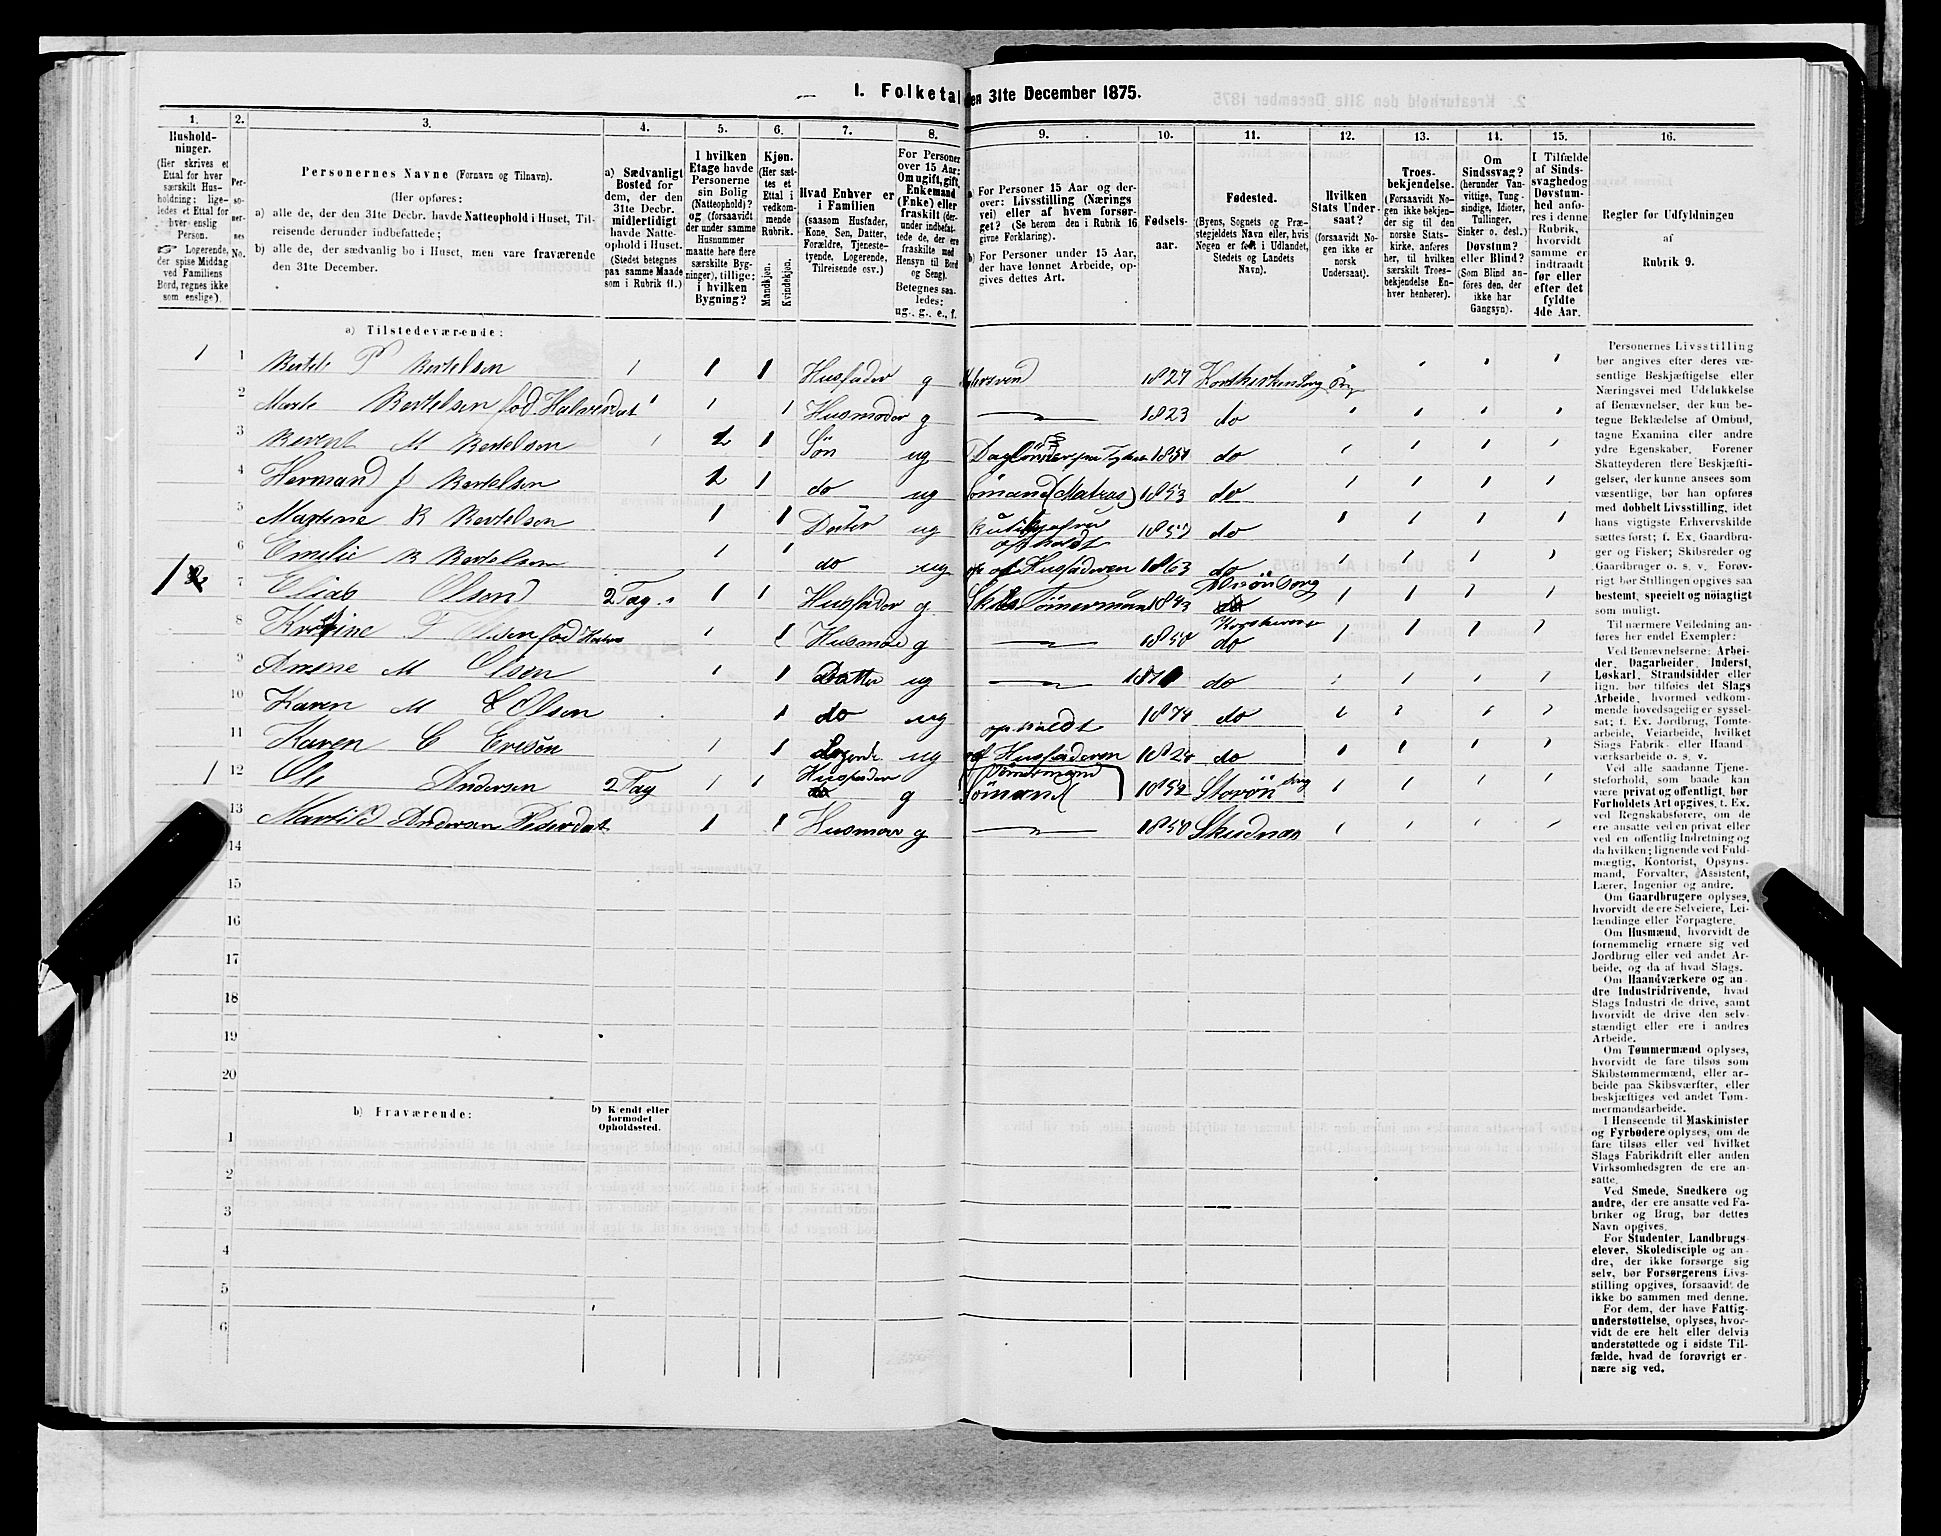 1. Folketal den 31te December 1875.
1. 2. 3. 4. 5. 6. 7. 8. 9. 10. 11. 12. 13. 14. 15. 16.
Hushold-
ninger.
(Her skrives et
Ettal for hver
særskilt Hus-
holdning; lige-
ledes et Ettal for
hver enslig
Person.
☞ Logerende,
der spise Middag
ved Familiens
Bord, regnes ikke
som enslige).
Per-
so-
ner-
nes
No.
Personernes Navne (Fornavn og Tilnavn).
(Her opføres:
a) alle de, der den 31te Decbr. havde Natteophold i Huset, Til-
reisende derunder indbefattede;
b) alle de, der sædvanlig bo i Huset, men vare fraværende
den 31te December.
a) Sædvanligt
Bosted for
dem, der den
31te Decbr.
midlertidigt
havde Natte-
ophold i Huset.
(Stedet betegnes
paa samme Maade
som i Rubrik 11.)
I hvilken
Etage havde
Personerne
sin Bolig
(Natteophold)?
og (forsaavidt
der under samme
Husnummer
maatte høre flere
særskilte Byg-
ninger), tillige:
i hvilken
Bygning?
Kjøn.
(Her sæt-
tes et
Ettal i
vedkom-
mende
Rubrik.
Mandkjøn.
Kvindekjøn.
Hvad Enhver er
i Familien
(saasom Husfader,
Kone, Søn, Datter,
Forældre, Tjeneste-
tyende, Logerende,
Tilreisende osv.)
For Personer
over 15 Aar:
Om ugift, gift,
Enkemand
(Enke) eller
fraskilt (der-
under indbefat-
tede de, der ere
fraskilte med
Hensyn til Bord
og Seng).
Betegnes saa-
ledes:
ug., g., e., f.
a) For Personer 15 Aar og der-
over: Livsstilling (Nærings
vei) eller af hvem forsør-
get? (Se herom den i Rubrik 16
givne Forklaring).
b) For Personer under 15 Aar,
der have lønnet Arbeide, op-
gives dettes Art.
Fødsels-
aar.
Fødested.
(Byens, Sognets og Præ-
stegjeldets Navn eller, hvis
Nogen er født i Udlandet,
Stedets og Landets
Navn).
Hvilken
Stats Under-
saat?
(forsaavidt No-
gen ikke er
norsk
Undersaat).
Troes-
bekjendelse.
(Forsaavidt No-
gen ikke bekjen-
der sig til den
norske Stats-
kirke, anføres
her, til hvilken
særskilt Troes-
bekjendelse En-
hver henhører).
Om
Sindssvag?
(herunder Van-
vittige, Tung-
sindige, Idioter,
Tullinger,
Sinker o. desl.)
Døvstum?
eller Blind?
(Som Blind an-
føres den, der
ikke har
Gangsyn).
I Tilfælde
af Sinds-
svaghed og
Døvstum-
hed anfø-
res i denne
Rubrik,
hvorvidt
samme er
indtraadt
før eller
efter det
fyldte
4de Aar.
Regler for Udfyldningen
af
Rubrik 9.
a) Tilstedeværende:
1 1 Bertel P Bertelson 1 1 1 Husfader g 1827
2 Marte Bertelson fød Halvorsdat 1 1 1 Husmoder g 1823 do
3 Berent M Bertelson 1 2 1 Søn ug 1851 do
4 Herman J Bertelson 2 1 do ug Sømand (Matros) 1853 do
5 Martine B Bertelson 1 1 Datter ug 1857 do
6 Emilie B Bertelson 1 1 do ug op af Husfaderen 1863 do
1 7 Elias Olsen 2 Tag 1 1 Husfader g Skibs Tømermand 1843
8 Kristine T Olsen fød 1 1 Husmor g 1850 do
9 M Olsen 1 1 Datter ug 1871 do
10 Karen M Olsen 1 do ug 1874 do
11 Karen C 1 1 Logerende ug opholdt af Husfaderen do
1 12 Ole Andersen 2 Tag 1 1 Husfader g Sømand (Tømermand) 1852
13 Andersen Pedersdat 1 1 Husmor g 1850 Skudnæs
14
15
16
17
18
19
20
b) Fraværende:
b) Kjendt eller
formodet
Opholdssted.
1
2
3
4
5
6
Personernes Livsstilling
bør angives efter deres væ-
sentlige Beskjæftigelse eller
Næringsvei med Udelukkelse
af Benævnelser, der kun be-
tegne Beklædelse af Ombud,
tagne Examina eller andre
ydre Egenskaber. Forener
Skatteyderen flere Beskjæfti-
gelser, der kunne ansees som
væsentlige, bør han opføres
med dobbelt Livsstilling, idet
hans vigtigste Erhvervskilde
sættes først; f. Ex. Gaardbru-
ger og Fisker; Skibsreder og
Gaardbruger o. s. v. Forøv-
rigt bør Stillingen opgives saa
bestemt, specielt og nøiagtigt
som muligt.
Til nærmere Veiledning an-
føres her endel Exempler:
Ved Benævnelserne: Arbei-
der, Dagarbeider, Inderst,
Løskarl, Strandsidder eller
lign. bør tilføies det Slags
Arbeide, hvormed vedkom-
mende hovedsagelig er syssel-
sat; f. Ex. Jordbrug, Tomte-
arbeide, Veiarbeide, hvilket
Slags Fabrik- eller Haand-
værksarbeide o. s. v.
Ved alle saadanne Tjene-
steforhold, som baade kan
være privat og offentligt, bør
Forholdets Art opgives, t. Ex.
ved Regnskabsførere, om de
ere ansatte ved en privat eller
ved en offentlig Indretning og
da hvilken; lignende ved Fuld-
mægtig, Kontorist, Opsyns-
mand, Forvalter, Assistent,
Lærer, Ingeniør og andre.
Om Gaardbrugere oplyses,
hvorvidt de ere Selveiere, Lei-
lændinge eller Forpagtere.
Om Husmænd, hvorvidt de
fornemmelig ernære sig ved
Jordbrug eller ved andet Ar-
beide, og da af hvad Slags.
Om Haandværkere og an-
dre Industridrivende, hvad
Slags Industri de drive, samt
hvorvidt de drive den selv-
stændigt eller ere i andres
Arbeide.
Om Tømmermænd oplyses,
hvorvidt de fare tilsøs som
Skibstømmermænd, eller ar-
beide paa Skibsværfter, eller
beskjæftiges ved andet Tøm-
mermandsarbeide.
I Henseende til Maskinister
og Fyrbødere oplyses, om de
fare tilsøs eller ved hvilket
Slags Fabrikdrift eller anden
Virksomhedsgren de ere an-
satte.
Ved Smede, Snedkere og
andre, der ere ansatte ved Fa-
briker og Brug, bør dettes
Navn opgives.
For Studenter, Landbrugs-
elever, Skoledisciple og an-
dre, der ikke forsørge sig
selv, bør Forsørgerens Livs-
stilling opgives, forsaavidt de
ikke bo sammen med denne.
For dem, der have Fattig-
understøttelse, oplyses, hvor-
vidt de ere helt eller delvis
understøttede og i sidste Til-
fælde, hvad de forøvrigt er-
nære sig ved.